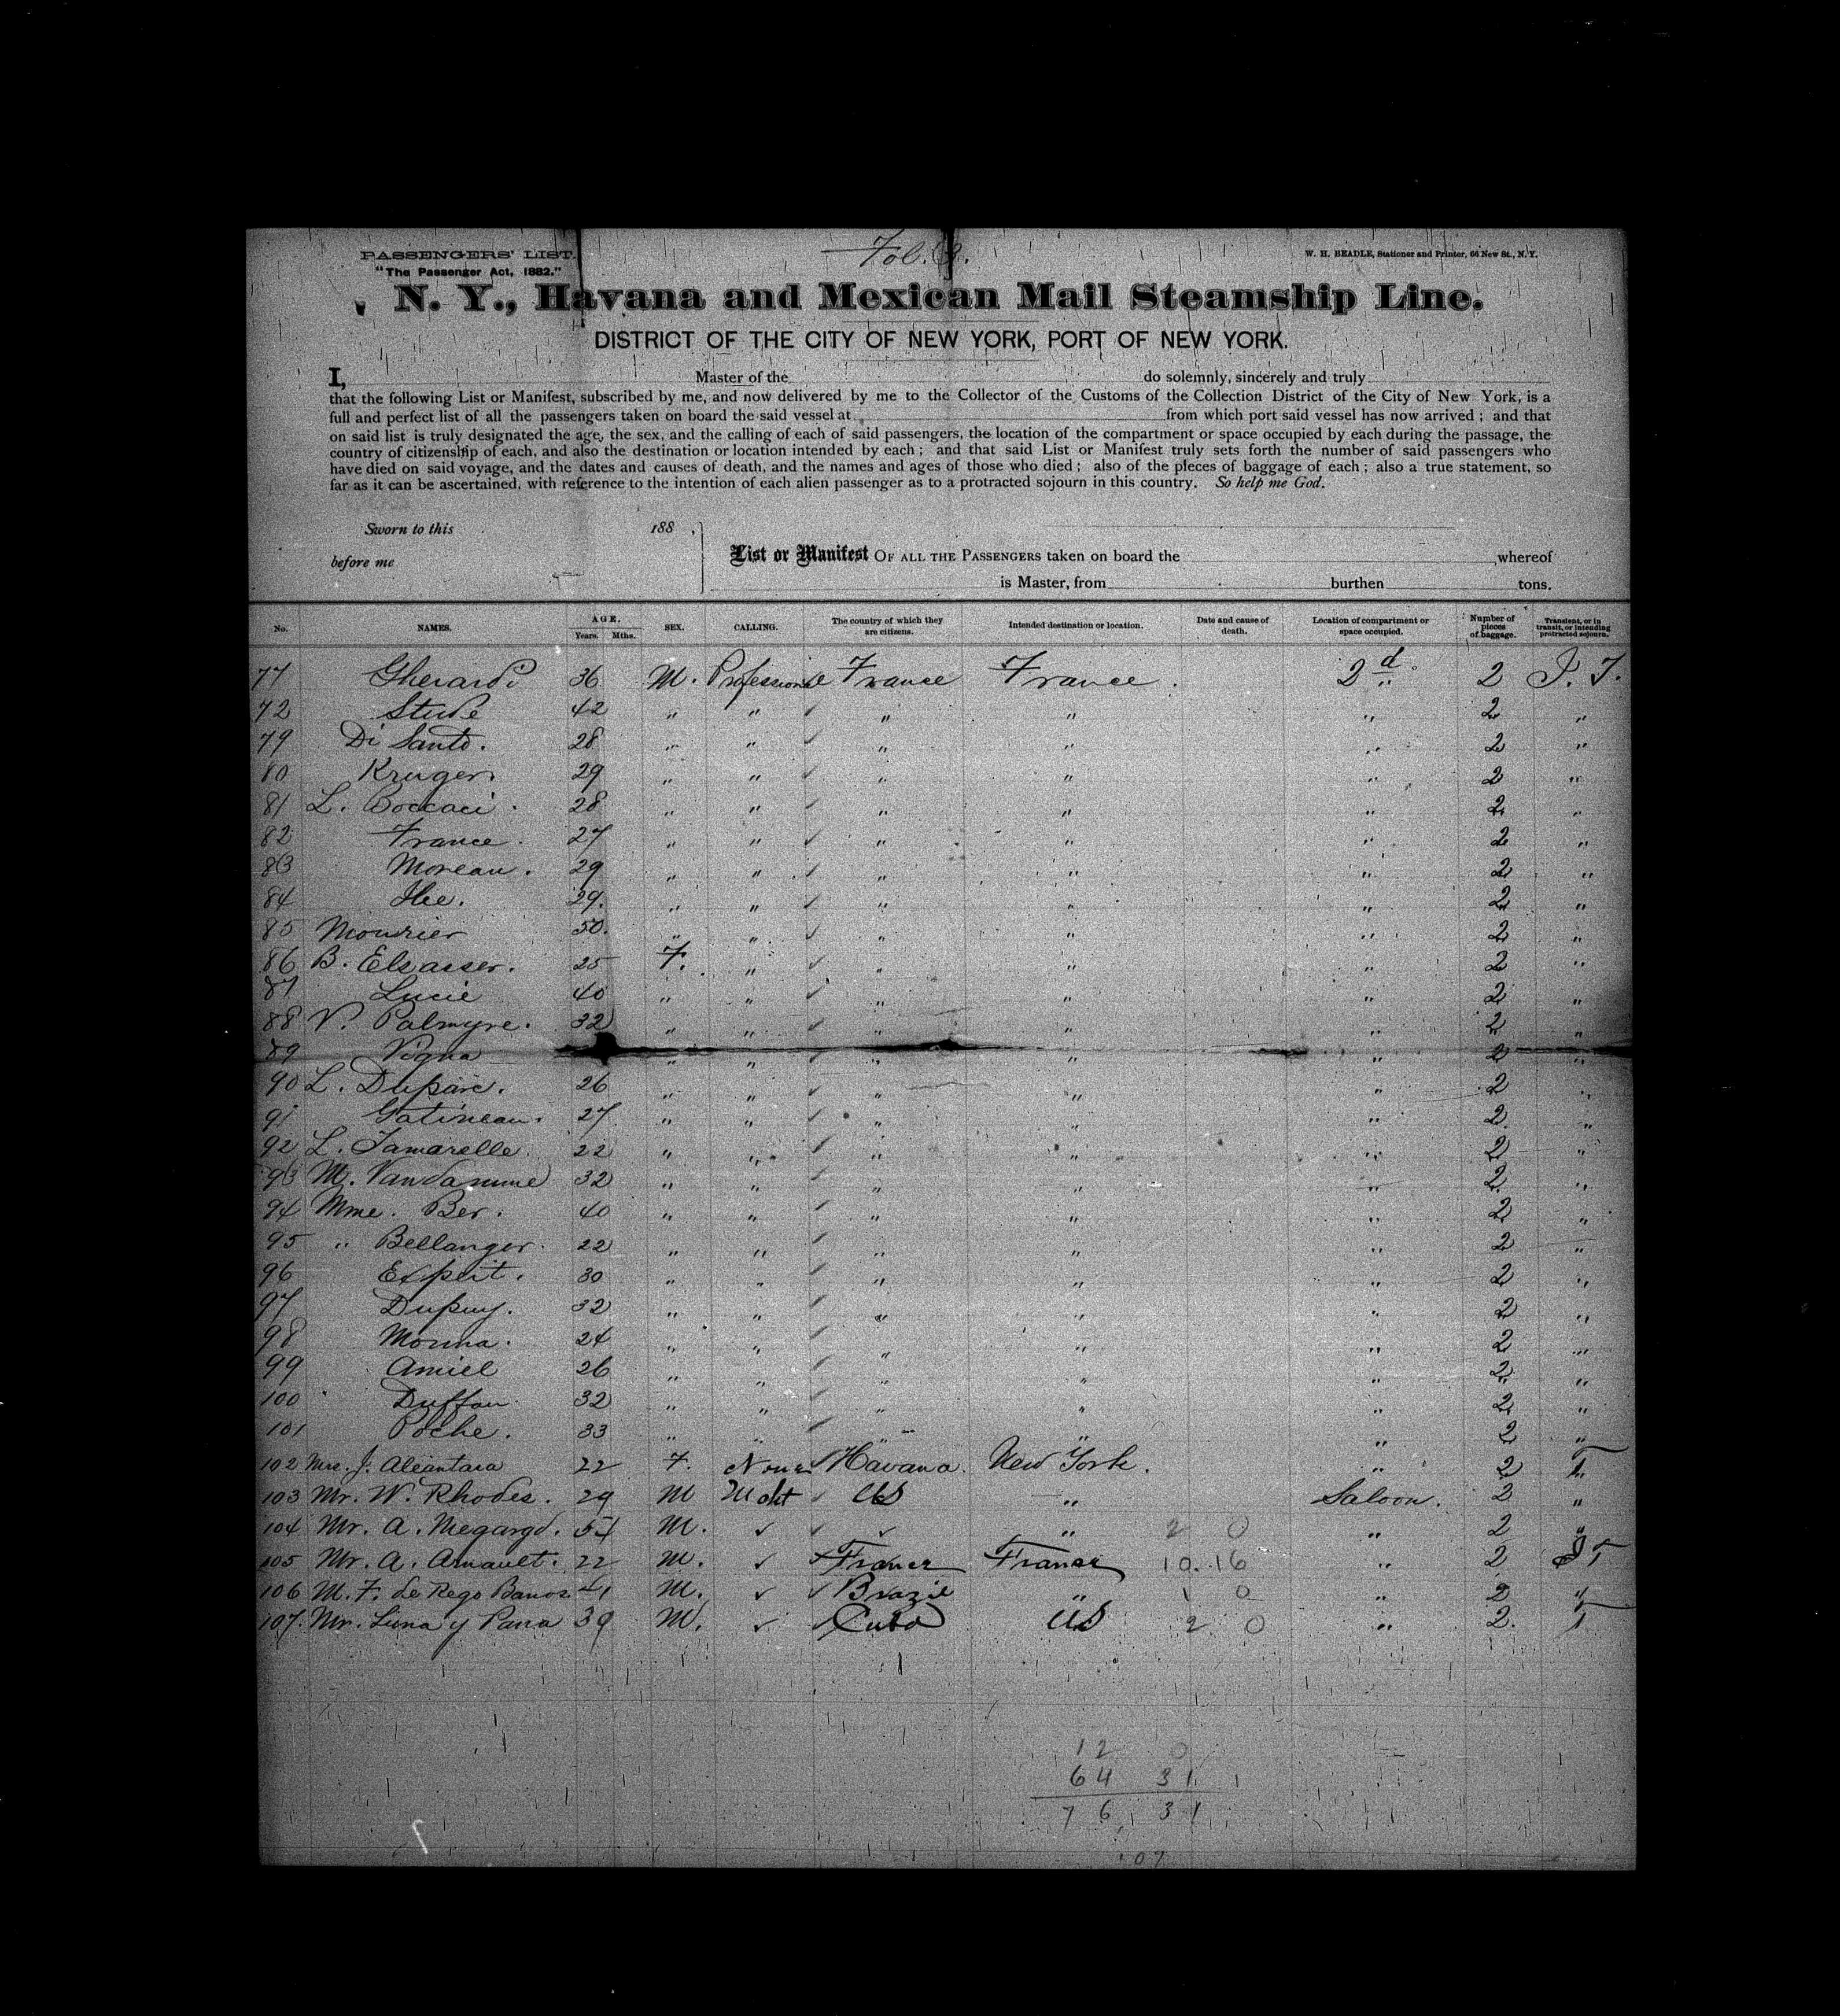 PASSENGERS' LIST.
Fol. 3.
W. H. BEADLE, Stationer and Printer, 66 New St., N. Y.
"The Passenger Act, 1882."
N. Y., Havana and Mexican Mail Steamship Line.
DISTRICT OF THE CITY OF NEW YORK, PORT OF NEW YORK.
I, Master of the do solemnly, sincerely and truly
that the following List or Manifest, subscribed by me, and now delivered by me to the Collector of the Customs of the Collection District of the City of New York, is a
full and perfect list of all the passengers taken on board the said vessel at from which port said vessel has now arrived ; and that
on said list is truly designated the age, the sex, and the calling of each of said passengers, the location of the compartment or space occupied by each during the passage, the
country of citizenship of each, and also the destination or location intended by each ; and that said List or Manifest truly sets forth the number of said passengers who
have died on said voyage, and the dates and causes of death, and the names and ages of those who died ; also of the pieces of baggage of each ; also a true statement, so
far as it can be ascertained, with reference to the intention of each alien passenger as to a protracted sojourn in this country. So help me God.
Sworn to this 188 .
before me
List or Manifest OF ALL THE PASSENGERS taken on board the , whereof
is Master, from burthen tons.
No. NAMES. AGE. Years. Mths. SEX. CALLING. The country of which they are citizens. Intended destination or location. Date and cause of death. Location of compartment or space occupied. Number of pieces of baggage. Transient, or in transit, or intending protracted sojourn.
77 Gherardi 36 M. Professional France France. 2d 2 I. T.
72 Stude 42 " " " " " 2 "
79 Di Santo. 28 " " " " " 2 "
80 Kruger 29 " " " " " 2 "
81 L. Boccaci 28 " " " " " 2 "
82 France. 27 " " " " " 2 "
83 Moreau. 29 " " " " " 2 "
84 29. " " " " " 2 "
85 Mourier 50. " " " " " 2 "
86 B. Elsasser. 25 F. " " " " 2 "
87 Lucie 40 " " " " " 2 "
88 V. Palmyre. 32 " " " " " 2 "
89 Vigna " " " " " 2 "
90 L. Duparc. 26 " " " " " 2 "
91 Gatineau. 27 " " " " " 2 "
92 L. Jamarelle 22 " " " " " 2 "
93 M. Vandamme 32 " " " " " 2 "
94 Mme. Ber. 40 " " " " " 2 "
95 " Bellanger. 22 " " " " " 2 "
96 Expert. 30 " " " " " 2 "
97 Dupuy. 32 " " " " " 2 "
98 Morina. 24 " " " " " 2 "
99 Amiel 26 " " " " " 2 "
100 Duffau 32 " " " " " 2 "
101 Poche. 33 " " " " " 2 "
102 Mrs. J. Alcantara 22 F. None Havana. New York. " 2 T
103 Mr. W. Rhodes. 29 M Mcht US " Saloon. 2 "
104 Mr. A. Megargd. 54 M. " 2 0 " 2 "
105 Mr. A. Arnault. 22 M. France France 10. 16 " 2 I T
106 M. F. de Rego Banos. 41 M. Brazil " 1 0 " 2 "
107. Mr. Luna y Parra 39 M. Cuba US 2 0 " 2. T
12 0
64 31
76, 31
107